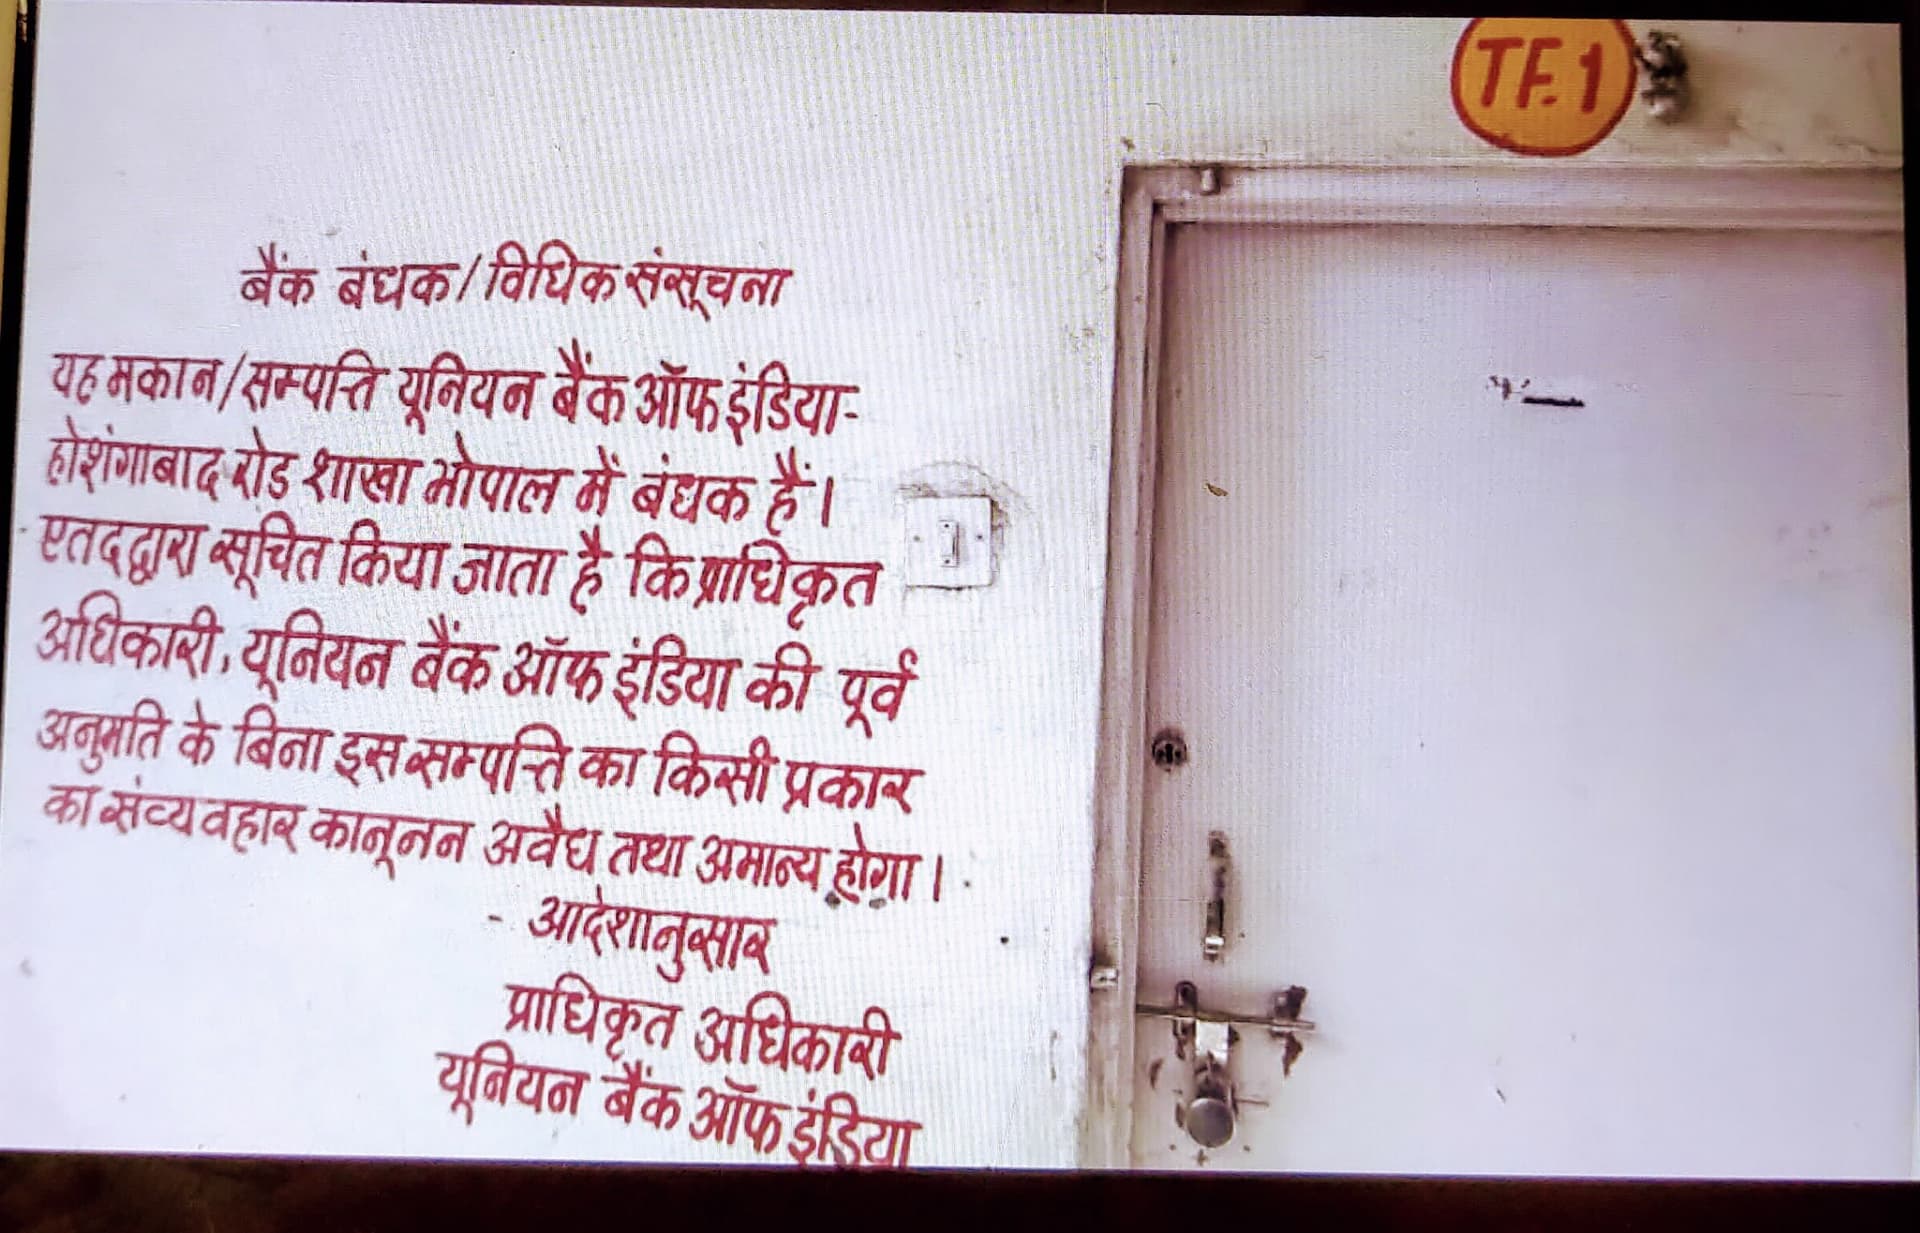 TF.1
बैंक बंधक/विधिक संसूचना
यह मकान/सम्पत्ति यूनियन बैंक ऑफ इंडिया-
होशंगाबाद रोड शाखा भोपाल में बंधक हैं।
एतदद्वारा सूचित किया जाता है कि प्राधिकृत
अधिकारी, यूनियन बैंक ऑफ इंडिया की पूर्व
अनुमति के बिना इस सम्पत्ति का किसी प्रकार
का संव्यवहार कानूनन अवैध तथा अमान्य होगा।
- आदेशानुसार
प्राधिकृत अधिकारी
यूनियन बैंक ऑफ इंडिया